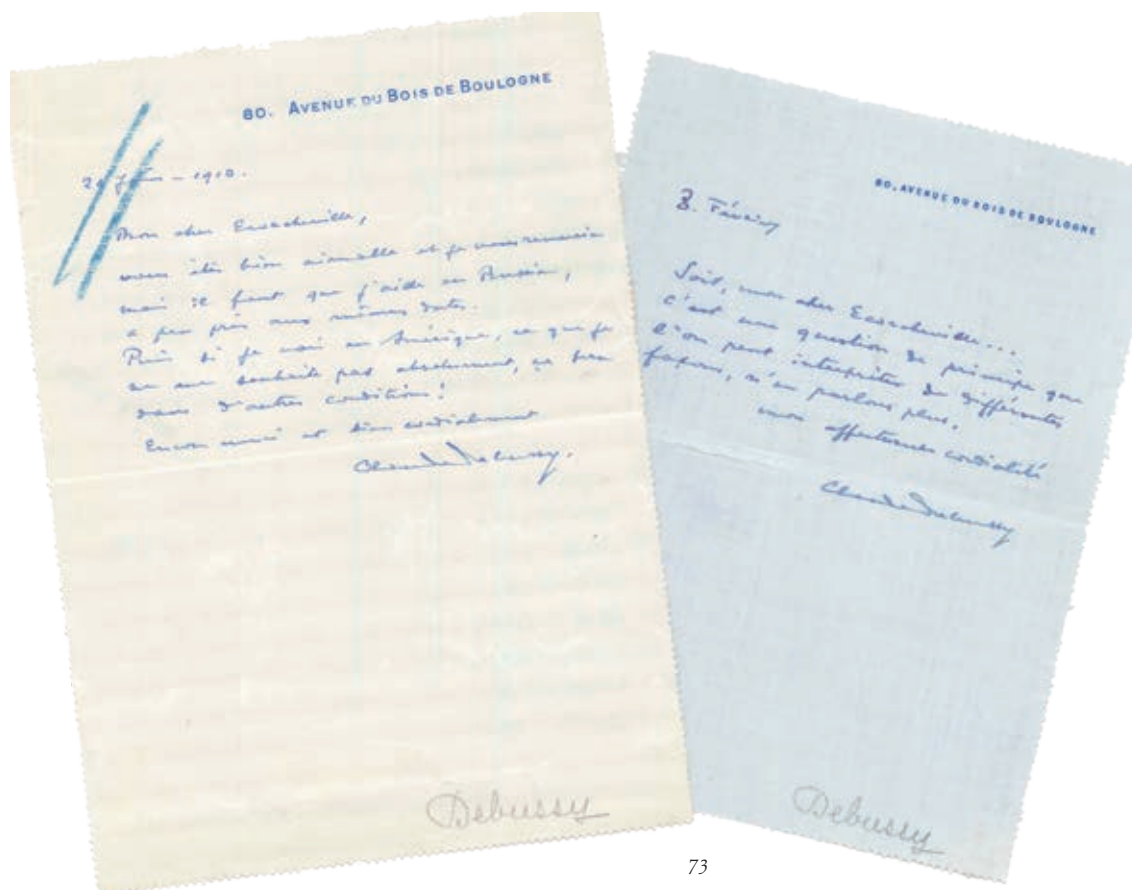 80. AVENUE DU BOIS DE BOULOGNE
1910.
Mon cher Ecorcheville,
vous êtes bien aimable et je vous remercie
mais il faut que j'aille en Russie,
à peu près aux mêmes dates.
Puis si je vais en Amérique, ce que je
ne me souhaite pas absolument, ce sera
dans d'autres conditions!
Encore merci et bien cordialement
Claude Debussy.
Debussy
80, AVENUE DU BOIS DE BOULOGNE
Février
Soit, mon cher Ecorcheville...
c'est une question de principe que
l'on peut interpréter de différentes
façons, n'en parlons plus.
mon affectueuse cordialité
Claude Debussy
Debussy
73